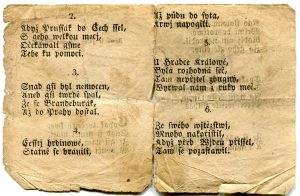 2.
Když Prušsák do Čech ssel,
S geho welkou mocj,
Očekáwali gsme
Tebe ku pomoci.
3.
Snad gsi byl nemocen,
Aneb gsi twrdě spal,
Že se Brandeburák,
Až do Prahy dostal.
4.
Češstj hrdinowé,
Statně se bránili,
Až půdu do syta,
Krwj napogili.
5.
U Hradce Králowé,
Byla rozhodná seč,
Tam nepřjtel zbugný,
Wyrwal nám z ruky meč.
6.
Ze swého wjtězstwj,
Mnoho nakořistil,
Když před Wjdeň přissel,
Tam se pozastawil.